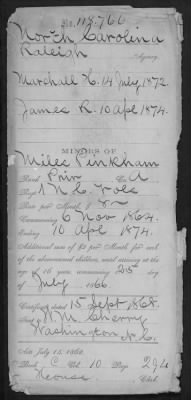 No. 118.766
North Carolina
Raleigh Agency.
Marshall H. 14 July, 1872.
James R. 10 Apl 1874.
MINORS OF
Miles Pinkham
Rank Priv Co. A
Regt 1 N C Vols
Rate per Month, $ 8
Commencing 6 Nov 1864
Ending 10 Apl 1874.
Additional sum of $2 per Month for each
of the abovenamed children, until arriving at the
age of 16 years, commencing 25th
of July 1866
Certificate dated 15 Sept 1868
Sent to W M Cherry
Washington N.C.
Act July 14, 1862.
Book C Vol. 10 Page 296
Clerk